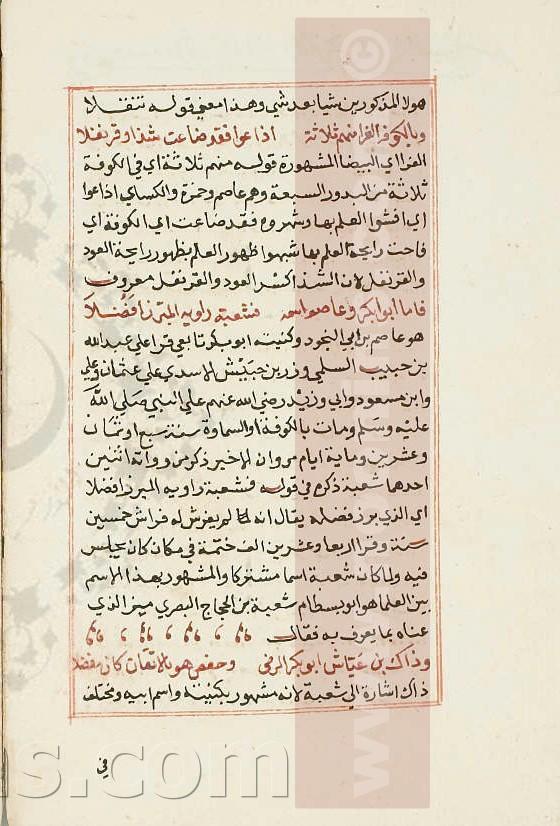 هولا المذكورين شيا بعد شي وهذا معني قوله تنقلا
وبالكوفة الغرا منهم ثلاثة اذاعوا فقد ضاعت شذا وقرنفلا
الغرا اي البيضا المشهورة قوله منهم ثلاثة اي في الكوفة
ثلاثة من البدور السبعة وهم عاصم وحمزة والكساي اذاعوا
اي افشوا العلم بها وشهروه فقد ضاعت اي الكوفة اي
فاحت رايحة العلم بها شبهوا ظهور العلم بظهور رايحة العود
والقرنفل لان الشذا كسر العود والقرنفل معروف
فاما ابو بكر وعاصم اسمه فشعبة راويه المبرز افضلا
هو عاصم بن ابي النجود وكنيته ابو بكر تابعي قرا علي عبد الله
بن حبيب السلمي وزر بن حبيش الاسدي علي عثمان وعلي
وابن مسعود وابي وزيد رضي الله عنهم علي النبي صلي الله
عليه وسلم ومات بالكوفة او السماوة سنة سبع او ثمان
وعشرين وماية ايام مروان الاخير ذكر من رواته اثنين
احدهما شعبة ذكره في قوله فشعبة راويه المبرز افضلا
اي الذي برز فضله يقال انه لم يفرش له فراش خمسين
سنة وقرا اربعا وعشرين الف ختمة في مكان كان يجلس
فيه ولما كان شعبة اسما مشتركا والمشهور بهذا الاسم
بين العلما هو ابو بسطام شعبة بن الحجاج البصري ميز الذي
عناه بما يعرف به فقال
وذاك بن عياش ابو بكر الرضي وحفص هو بالاتقان كان مفضلا
ذاك اشارة الي شعبة لانه مشهور بكنيته واسم ابيه ومختلف
في
s.com